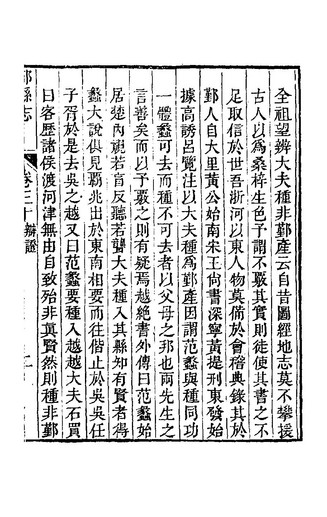 全祖望辨大夫種非鄞產云自昔圖經地志莫不攀援
古人以爲桑梓生色予謂不覈其實則徒使其書之不
足取信於世吾浙河以東人物莫備於會稽典錄其於
鄞人自大里黃公始南宋王尙書深寧黃提刑東發始
據高誘呂覽注以大夫種爲鄞產因謂范蠡與種同功
一體蠡可去而種不可去者以父母之邦也兩先生之
言善矣而以予覈之則有疑焉越絕書外傳曰范蠡始
居楚內視若盲反聽若聾大夫種入其縣知有賢者得
蠡大說俱見覇兆出於東南相要而往偕止於吳吳任
子胥於是去吳之越又曰范蠡要種入越越大夫石買
曰客歷諸侯渡河津無由自致殆非眞賢然則種非鄞
鄞縣志
卷三十 辨證